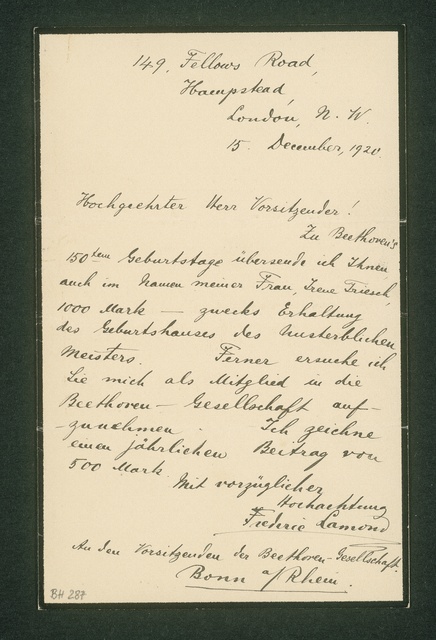 149, Fellows Road,
Hampstead,
London, N. W.
15. December, 1920.
Hochgeehrter Herr Vorsitzender!
Zu Beethoven's
150tem Geburtstage übersende ich Ihnen,
auch im Namen meiner Frau, Irene Triesch,
1000 Mark — zwecks Erhaltung
des Geburtshauses des Unsterblichen
Meisters. Ferner ersuche ich
Sie mich als Mitglied in die
Beethoven- Gesellschaft auf-
-zunehmen. Ich zeichne
einen jährlichen Beitrag von
500 Mark.
Mit vorzüglicher
Hochachtung
Frederic Lamond
An den Vorsitzenden der Beethoven-Gesellschaft.
Bonn a/Rhein.
BH 287